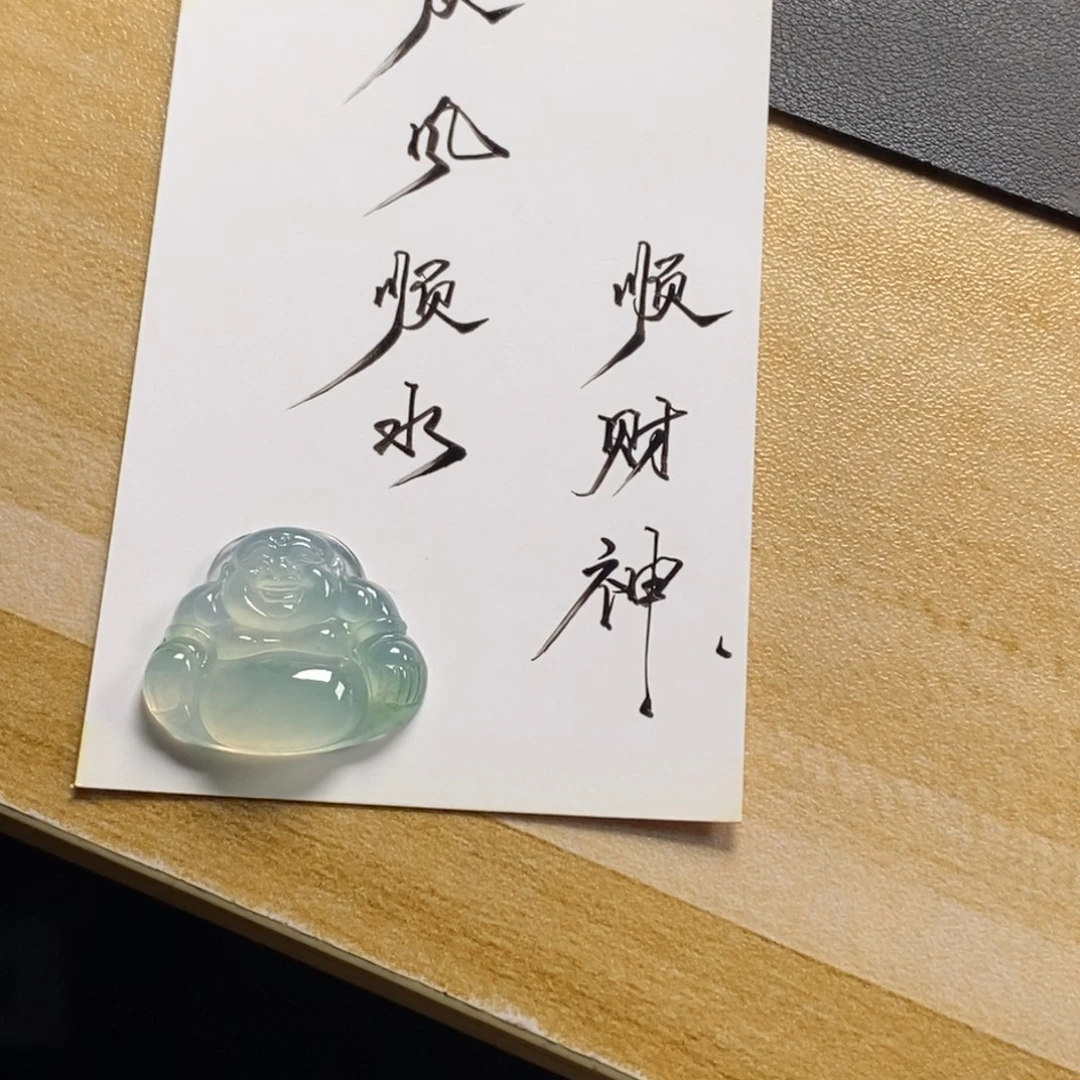 风顺水
顺财神